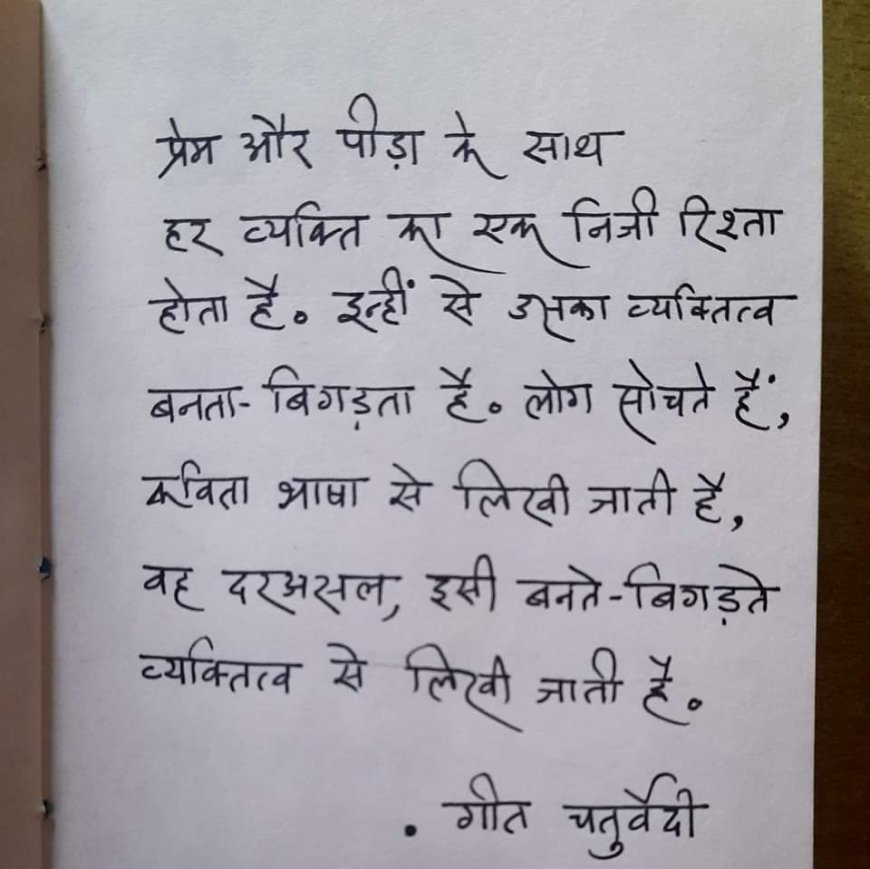 प्रेम और पीड़ा के साथ
हर व्यक्ति का एक निजी रिश्ता
होता है. इन्हीं से उसका व्यक्तित्व
बनता-बिगड़ता है. लोग सोचते हैं,
कविता भाषा से लिखी जाती है,
वह दरअसल, इसी बनते-बिगड़ते
व्यक्तित्व से लिखी जाती है.
. गीत चतुर्वेदी